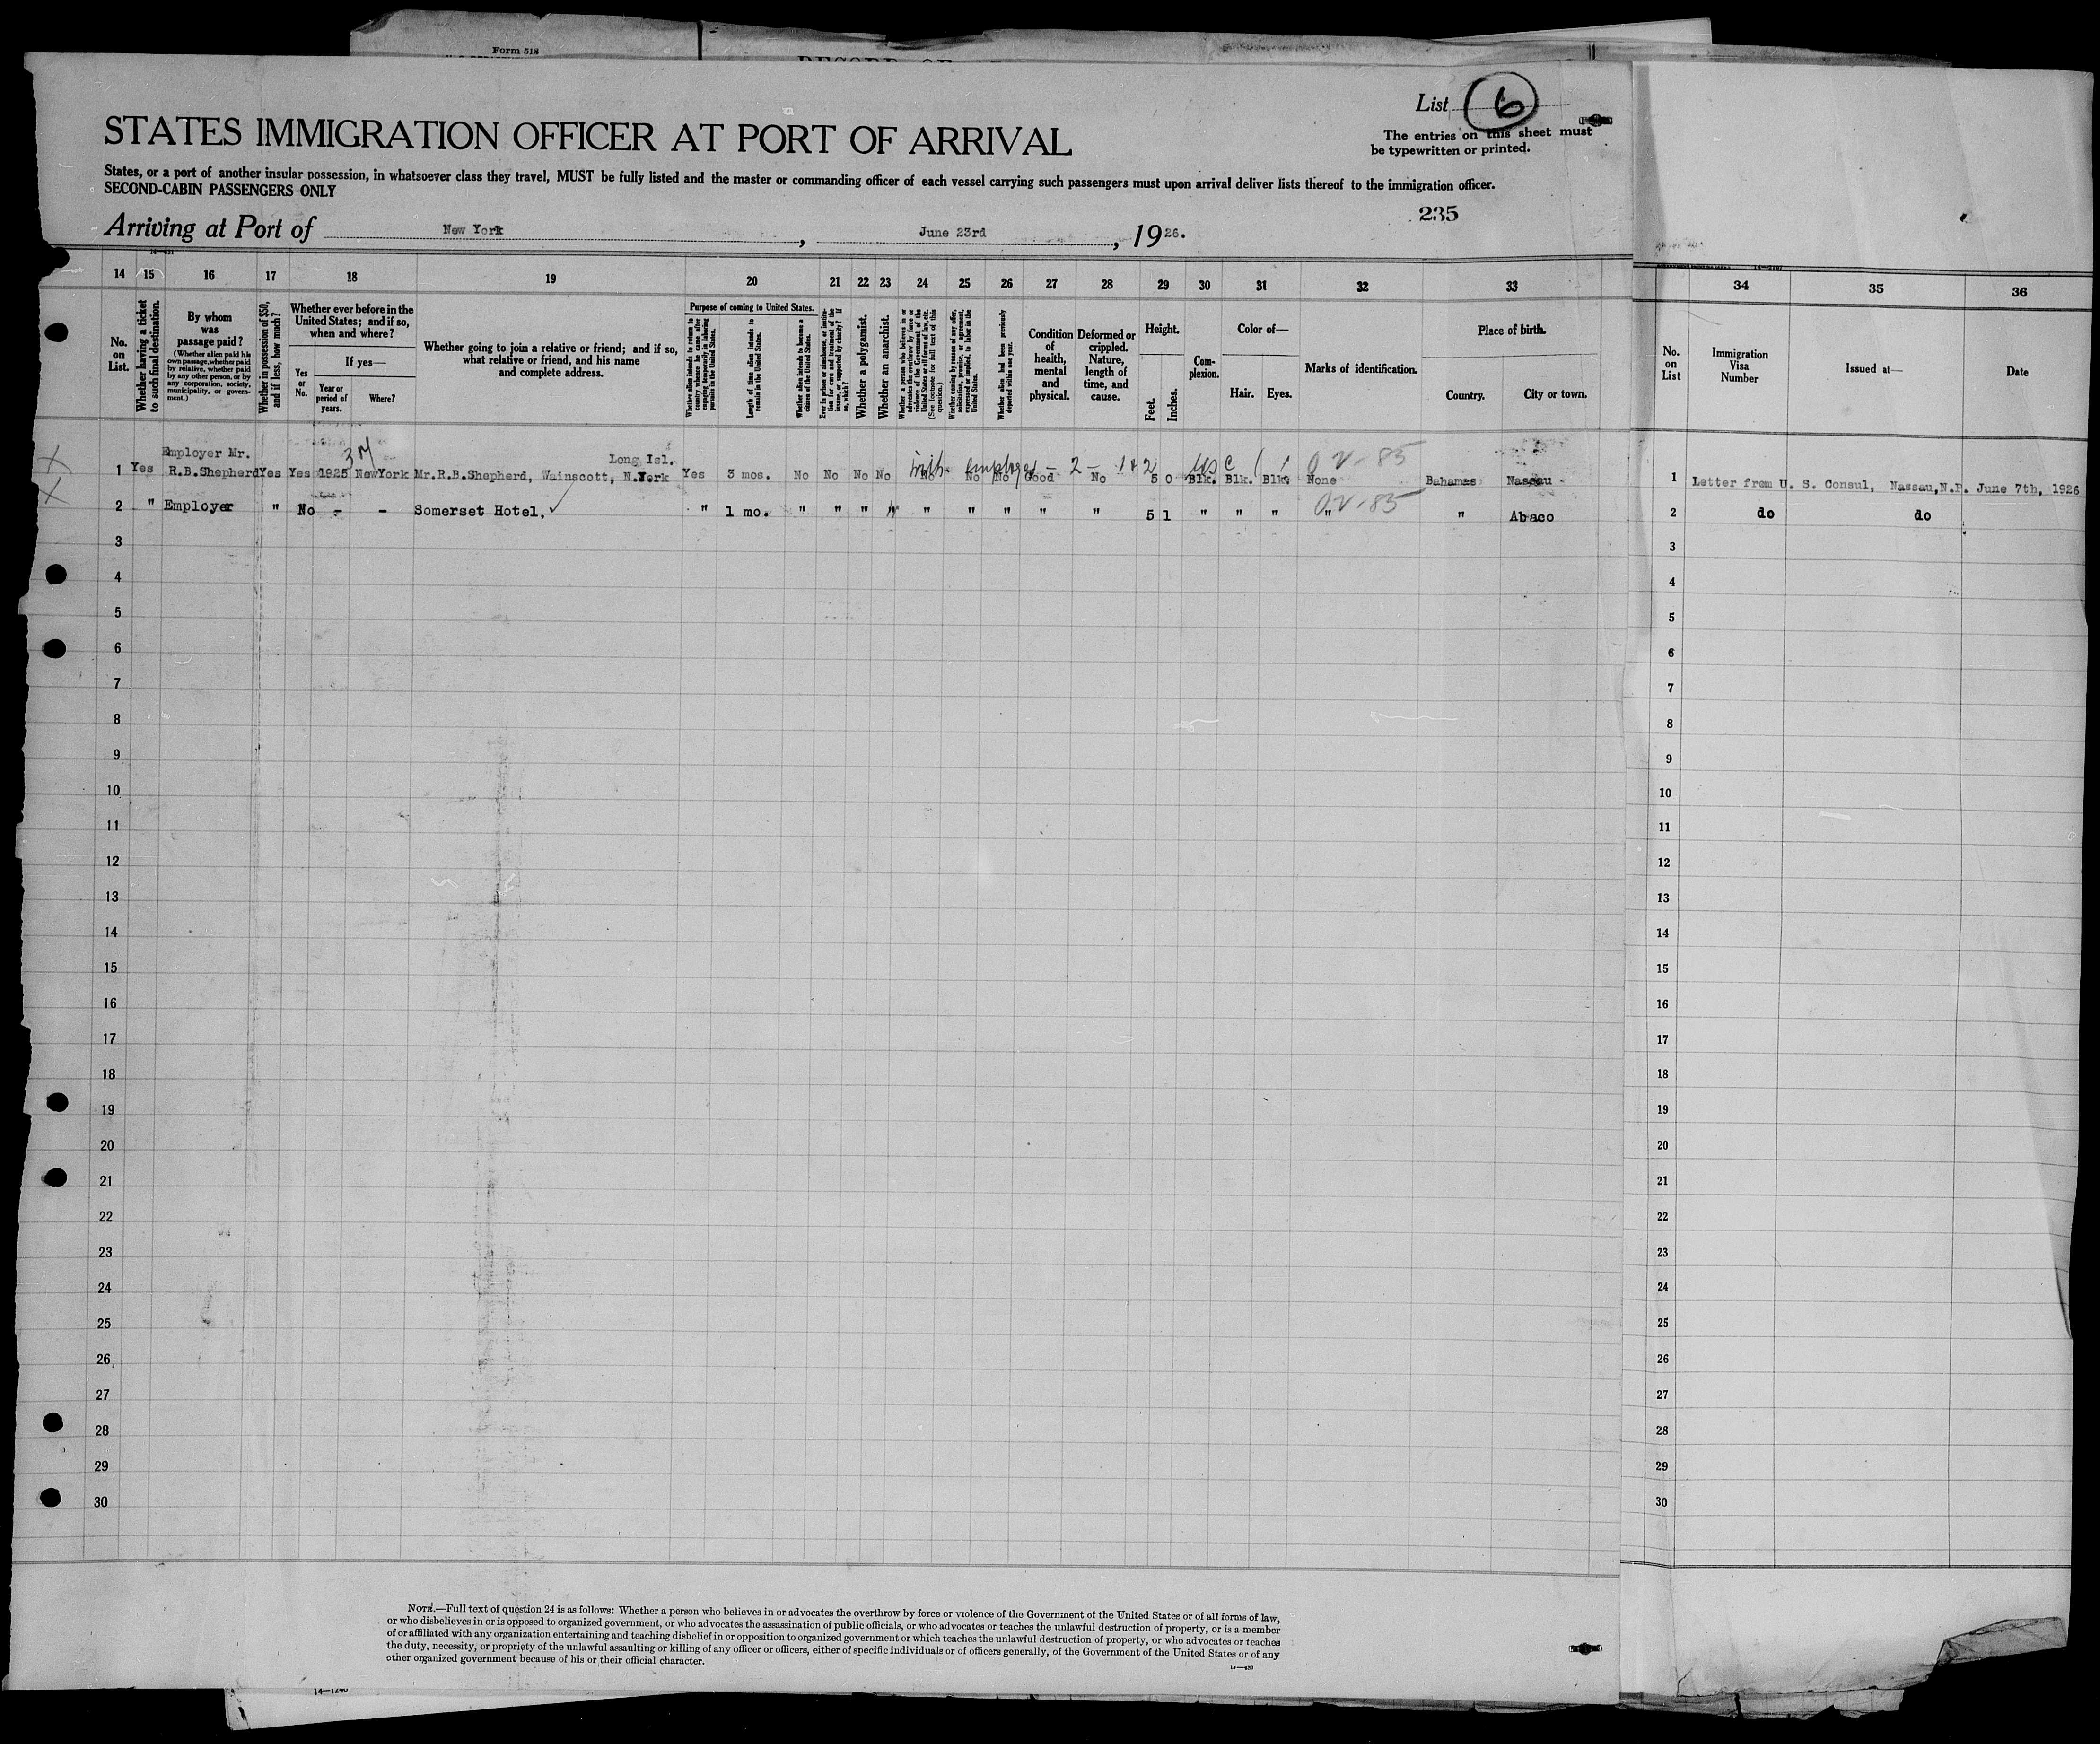 Form 518
List 6
The entries on this sheet must
be typewritten or printed.
STATES IMMIGRATION OFFICER AT PORT OF ARRIVAL
States, or a port of another insular possession, in whatsoever class they travel, MUST be fully listed and the master or commanding officer of each vessel carrying such passengers must upon arrival deliver lists thereof to the immigration officer.
SECOND-CABIN PASSENGERS ONLY
235
Arriving at Port of New York, June 23rd, 1926.
14 15 16 17 18 19 20 21 22 23 24 25 26 27 28 29 30 31 32 33 34 35 36
No. on List.
Whether having a ticket to such final destination.
By whom was passage paid?
(Whether alien paid his own passage, whether paid by relative, whether paid by any other person, or by any corporation, society, municipality, or government.)
Whether in possession of $50, and if less, how much?
Whether ever before in the United States; and if so, when and where?
Yes or No.
If yes—
Year or period of years.
Where?
Whether going to join a relative or friend; and if so, what relative or friend, and his name and complete address.
Purpose of coming to United States.
Whether alien intends to return to country whence he came after engaging temporarily in laboring pursuits in the United States.
Length of time alien intends to remain in the United States.
Whether alien intends to become a citizen of the United States.
Ever in prison or almshouse, or institution for care and treatment of the insane, or supported by charity? If so, which?
Whether a polygamist.
Whether an anarchist.
Whether a person who believes in or advocates the overthrow by force or violence of the Government of the United States or all forms of law, etc. (See footnote for full text of this question.)
Whether coming by reason of any offer, solicitation, promise, or agreement, expressed or implied, to labor in the United States.
Whether alien had been previously deported within one year.
Condition of health, mental and physical.
Deformed or crippled. Nature, length of time, and cause.
Height.
Feet. Inches.
Complexion.
Color of—
Hair. Eyes.
Marks of identification.
Place of birth.
Country. City or town.
No. on List
Immigration Visa Number
Issued at—
Date
Employer Mr. Long Isl. with employer - 2 - 1 & 2 usc
1 Yes R.B.Shepherd Yes Yes 1925 NewYork Mr.R.B.Shepherd, Wainscott, N.York Yes 3 mos. No No No No No No No Good No 5 0 Blk. Blk. Blk. None Bahamas Nassau 1 Letter from U. S. Consul, Nassau,N.P. June 7th, 1926
2 " Employer " No - - Somerset Hotel, " 1 mo. " " " " " " " " " 5 1 " " " " " Abaco 2 do do
3 3
4 4
5 5
6 6
7 7
8 8
9 9
10 10
11 11
12 12
13 13
14 14
15 15
16 16
17 17
18 18
19 19
20 20
21 21
22 22
23 23
24 24
25 25
26 26
27 27
28 28
29 29
30 30
NOTE.—Full text of question 24 is as follows: Whether a person who believes in or advocates the overthrow by force or violence of the Government of the United States or of all forms of law,
or who disbelieves in or is opposed to organized government, or who advocates the assassination of public officials, or who advocates or teaches the unlawful destruction of property, or is a member
of or affiliated with any organization entertaining and teaching disbelief in or opposition to organized government or which teaches the unlawful destruction of property, or who advocates or teaches
the duty, necessity, or propriety of the unlawful assaulting or killing of any officer or officers, either of specific individuals or of officers generally, of the Government of the United States or of any
other organized government because of his or their official character.